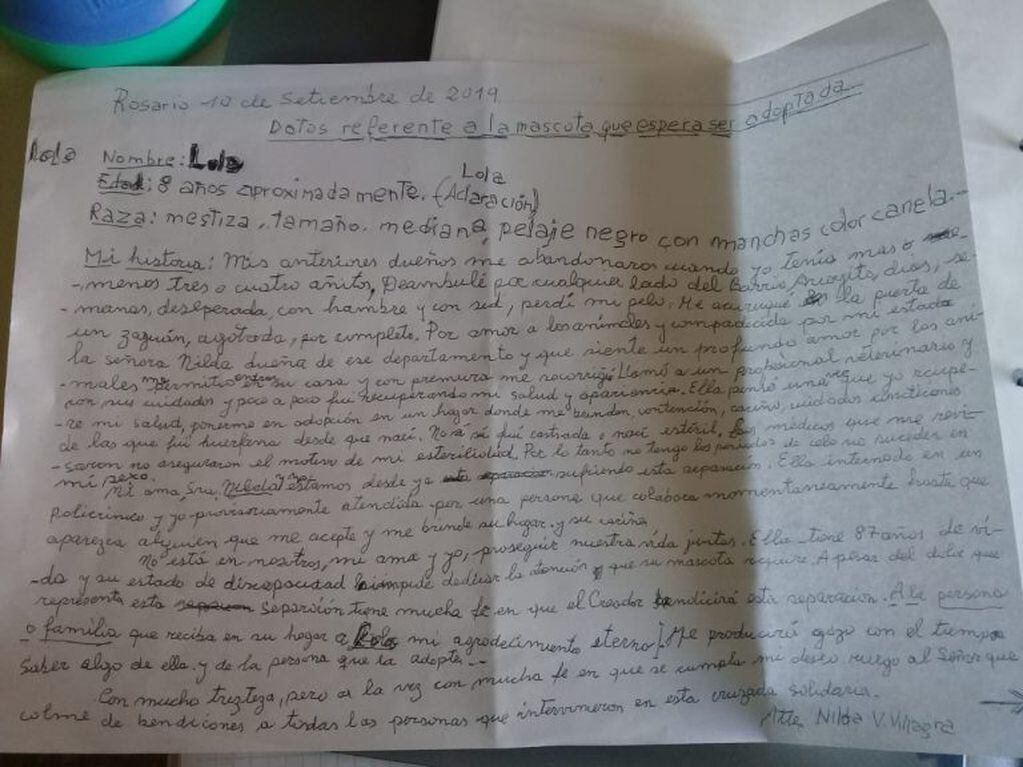 Rosario 10 de Setiembre de 2019
Datos referente a la mascota que espera ser adoptada
Lola Nombre: Lola
Lola
Edad: 8 años aproximadamente. (Aclaración)
Raza: mestiza, tamaño, mediana, pelaje negro con manchas color canela.-
Mi historia: Mis anteriores dueños me abandonaron cuando yo tenía mas o
- menos tres o cuatro añitos, Deambulé por cualquier lado del Barrio días, se-
- manas, deseperada, con hambre y con sed, perdí mi pelo. Me acurruqué la puerta de
un zaguán, agotada, por completo. Por amor a los animales y compadecida por mi estado
la señora Nilda dueña de ese departamento y que siente un profundo amor por los ani-
- males permitió su casa y con premura me socorrió. Llamó a un profesional veterinario y
con sus cuidados y poco a poco fuí recuperando mi salud y apariencia. Ella pensó una vez que yo recupe-
- re mi salud, ponerme en adopción en un hogar donde me brinden, contención, cariño, cuidados
de las que fuí huérfana desde que nací. No sé sí fuí castrada o nací estéril, los médicos que me revi-
- saron no aseguraron el motivo de mi esterilidad. Por lo tanto no tengo los períodos de celo no suceden en
mi sexo.
Mi ama Sra. Nilda y yo estamos desde ya sufriendo esta separación. Ella internada en un
policlínico y yo provisoriamente atendida por una persona que colabora momentaneamente hasta que
aparezca alguien que me acepte y me brinde su hogar y su cariño.
No está en nosotras, mi ama y yo, proseguir nuestra vida juntas. Ella tiene 87 años de vi-
- da y su estado de discapacidad le impide dedicar la atención que su mascota requiere. A pesar del dolor que
representa esta separación tiene mucha fe en que el Creador bendicirá esta separación. A la persona
o familia que reciba en su hogar a Lola mi agradecimiento eterno! Me producirá gozo con el tiempo
saber algo de ella y de la persona que la adopte.--
Con mucho trizteza, pero a la vez con mucha fe en que se cumpla mi deseo ruego al Señor que
colme de bendiciones a todas las personas que intervinieron en esta cruzada solidaria.
Atte Nilda V. Villagra